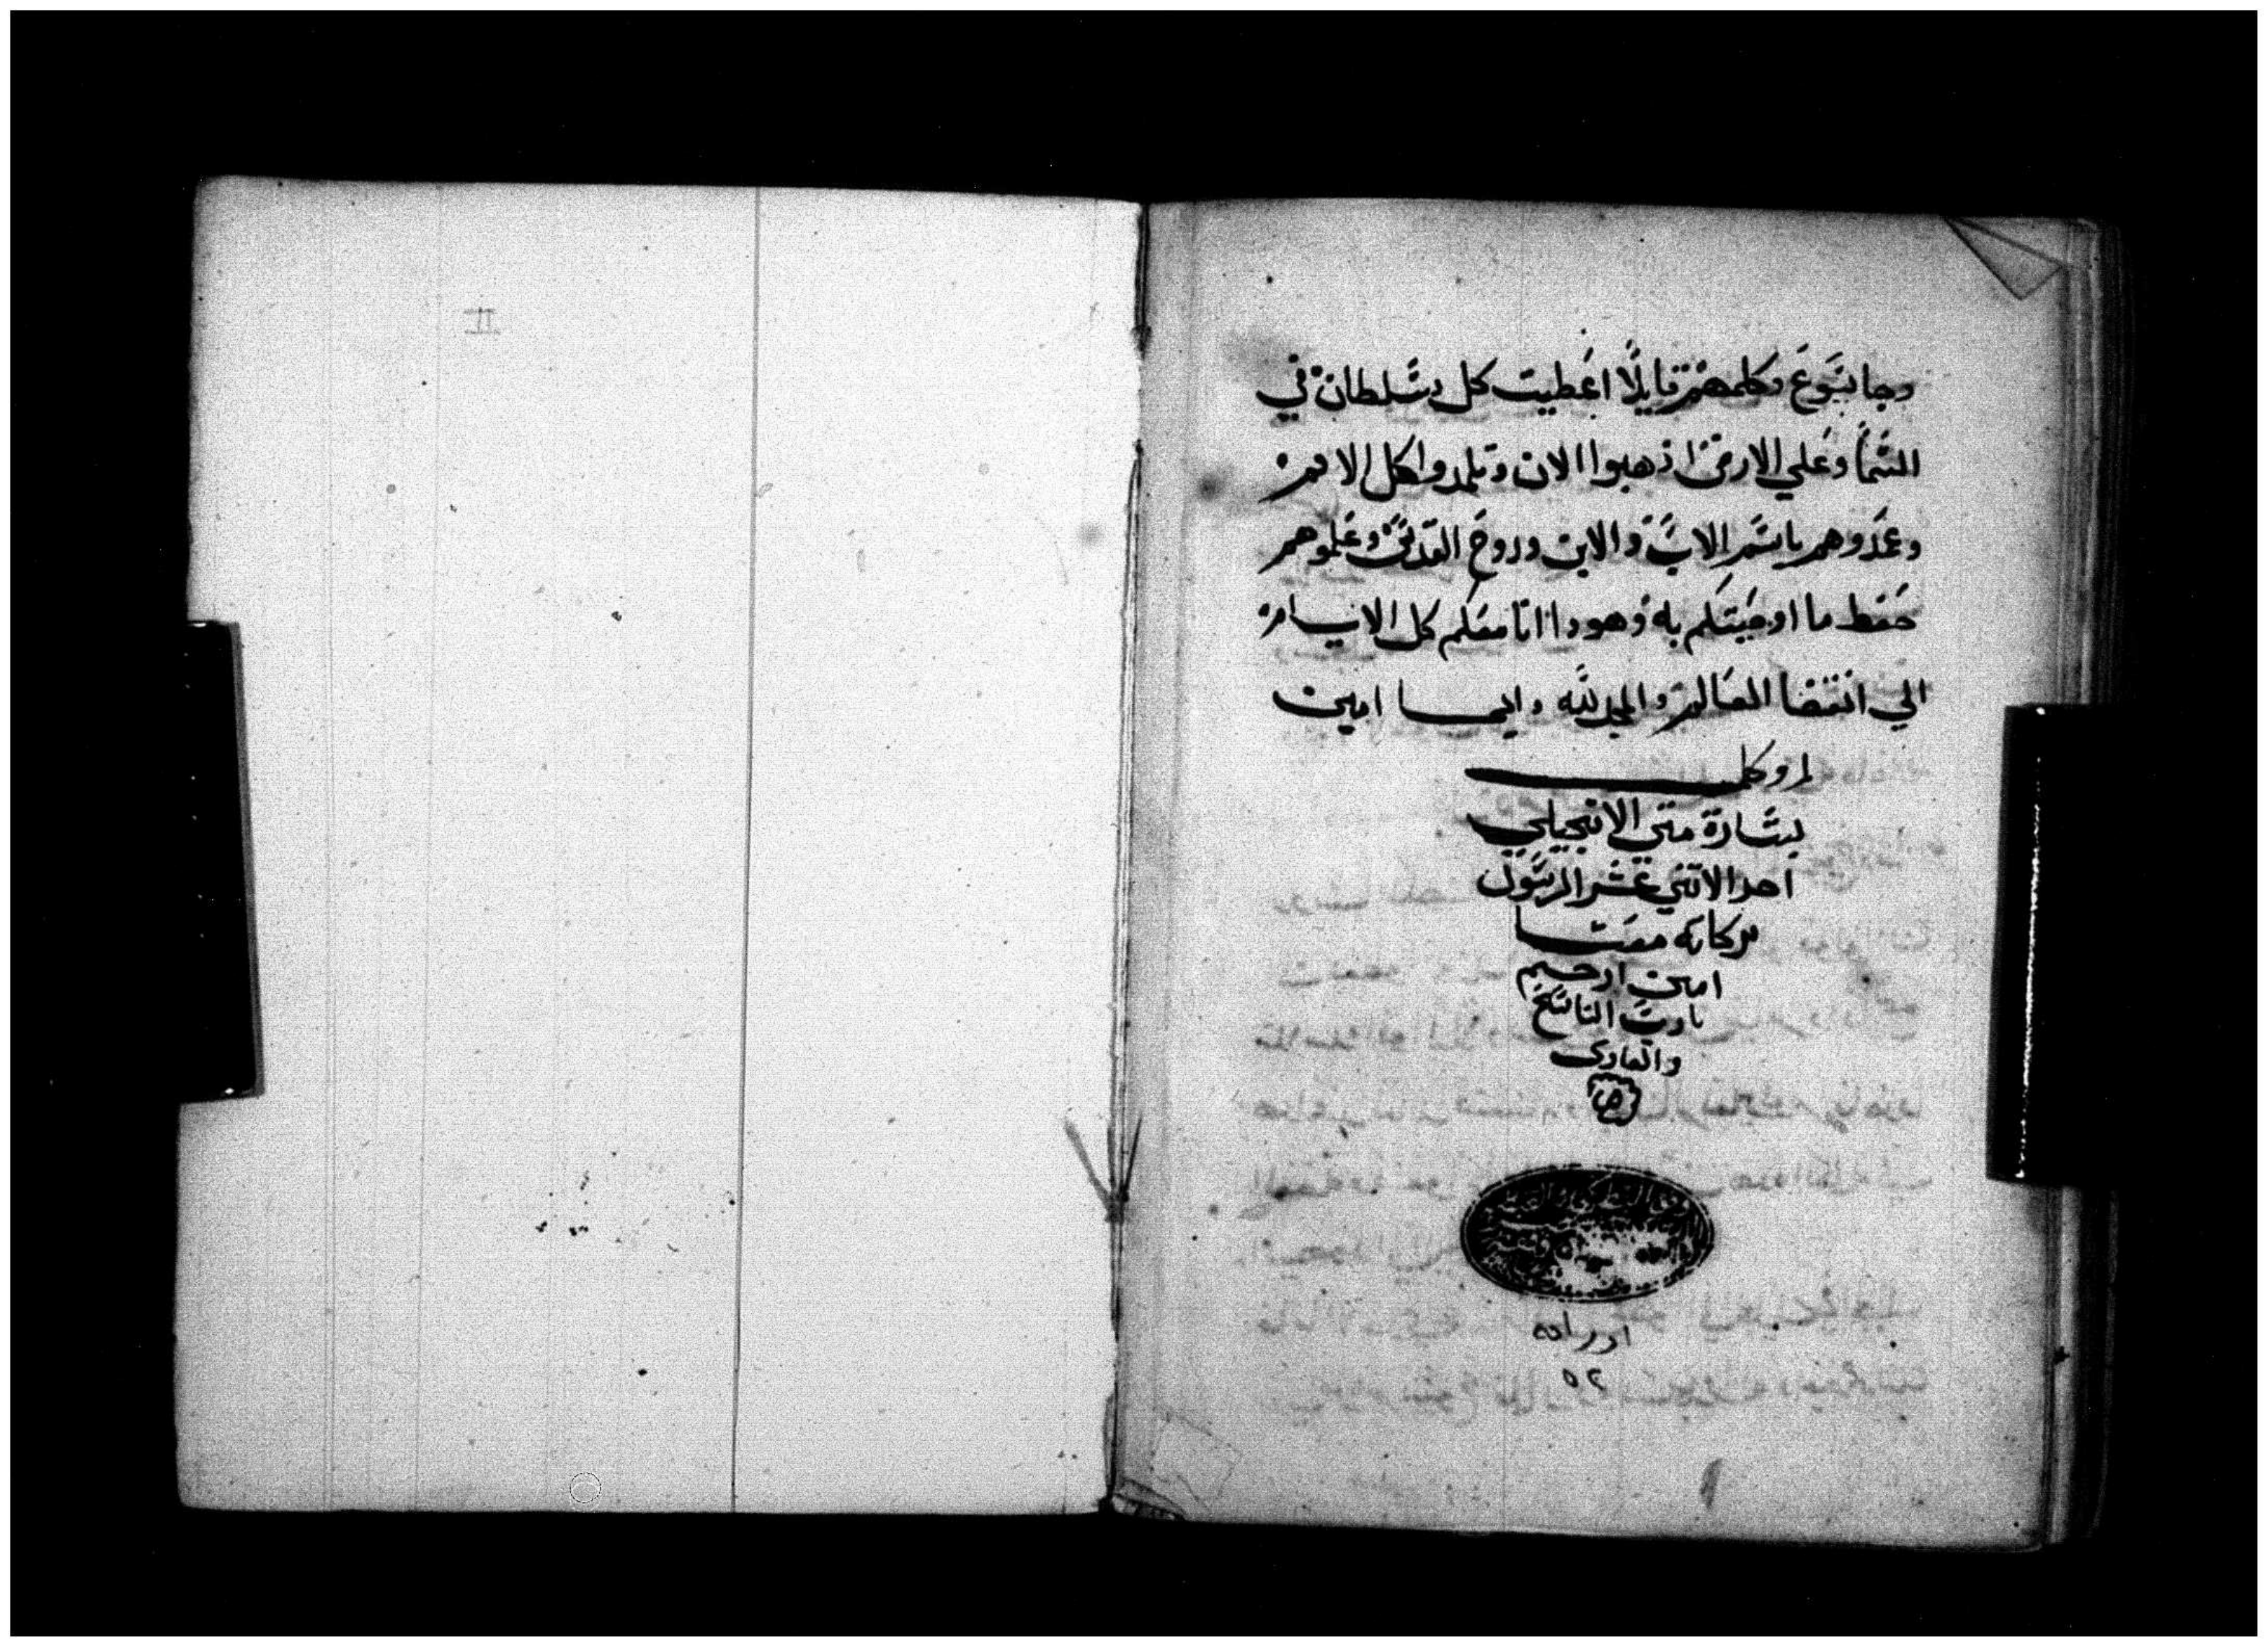 وجا يسوع وكلمهم قايلًا اعطيت كل سلطان في
السما وعلي الارض اذهبوا الان وتلمدوا كل الامم
وعمدوهم باسم الاب والابن وروح القدس وعلموهم
حفط ما اوصيتكم به وهودا انا معكم كل الايام
الي انقضا العالم والمجد لله دايما امين
بشارة متي الانجيلي
احد الاتني عشر الرسول
بركاته معنا
امين ارحم
يارب الناسخ
والقاري
اوراقه
٥٢